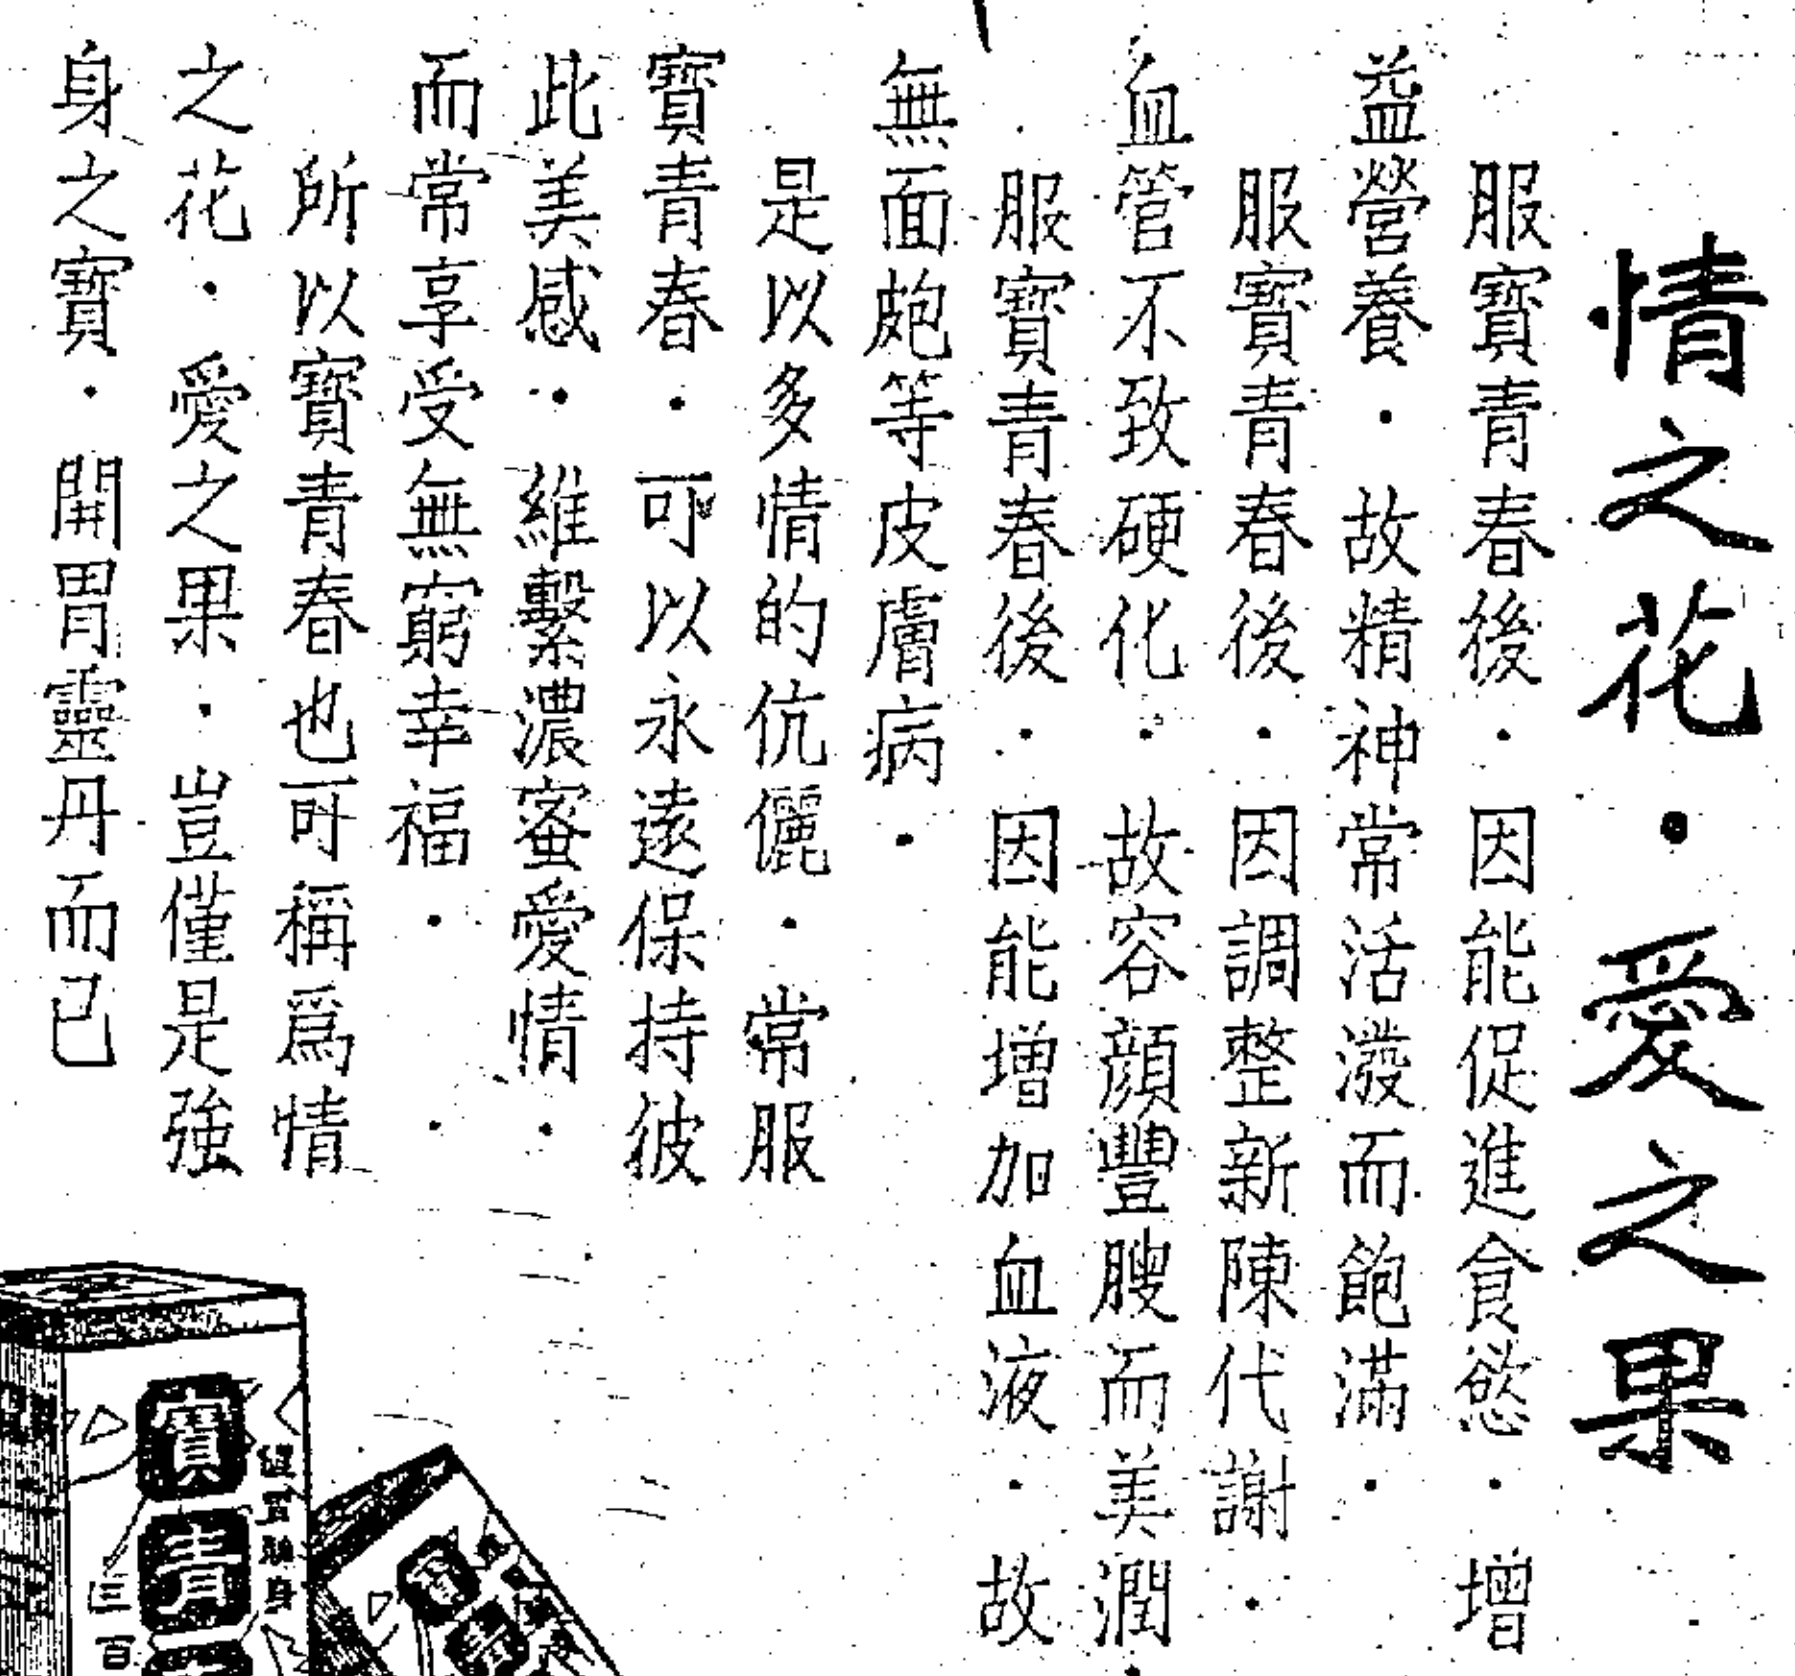 情之花・愛之果
服寶青春後・因能促進食慾・增
益營養・故精神常活潑而飽滿・
服寶青春後・因調整新陳代謝・
血管不致硬化・故容顏豐腴而美潤・
服寶青春後・因能增加血液・故
無面皰等皮膚病・
是以多情的伉儷・常服
寶青春・可以永遠保持彼
此美感・維繫濃蜜愛情・
而常享受無窮幸福・
所以寶青春也可稱爲情
之花・愛之果・豈僅是強
身之寶・開胃靈丹而已
寶青
健胃強身
三百
寶青